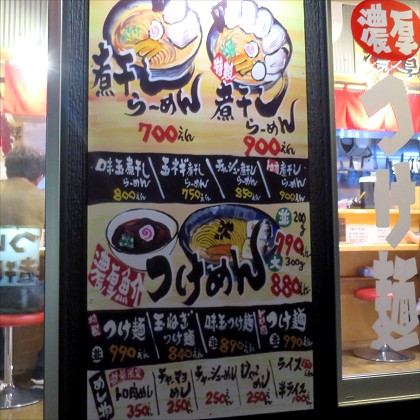 煮干し
らーめん
700えん
特製
煮干し
らーめん
900えん
味玉煮干し
らーめん
800えん
玉ネギ煮干し
らーめん
750えん
チャーシュー煮干し
らーめん
850えん
らーめん
900えん
濃厚魚介
つけめん
並 200g
790えん
大 300g
880えん
つけ麺
並 990えん
玉ねぎ
つけ麺
並 840えん
味玉つけ麺
並 890えん
つけ麺
990えん
めし物
350えん
チャーマヨ
めし
250えん
チャーシューめし
250えん
めし
250えん
ライス
半ライス
100えん
濃厚
つけ麺